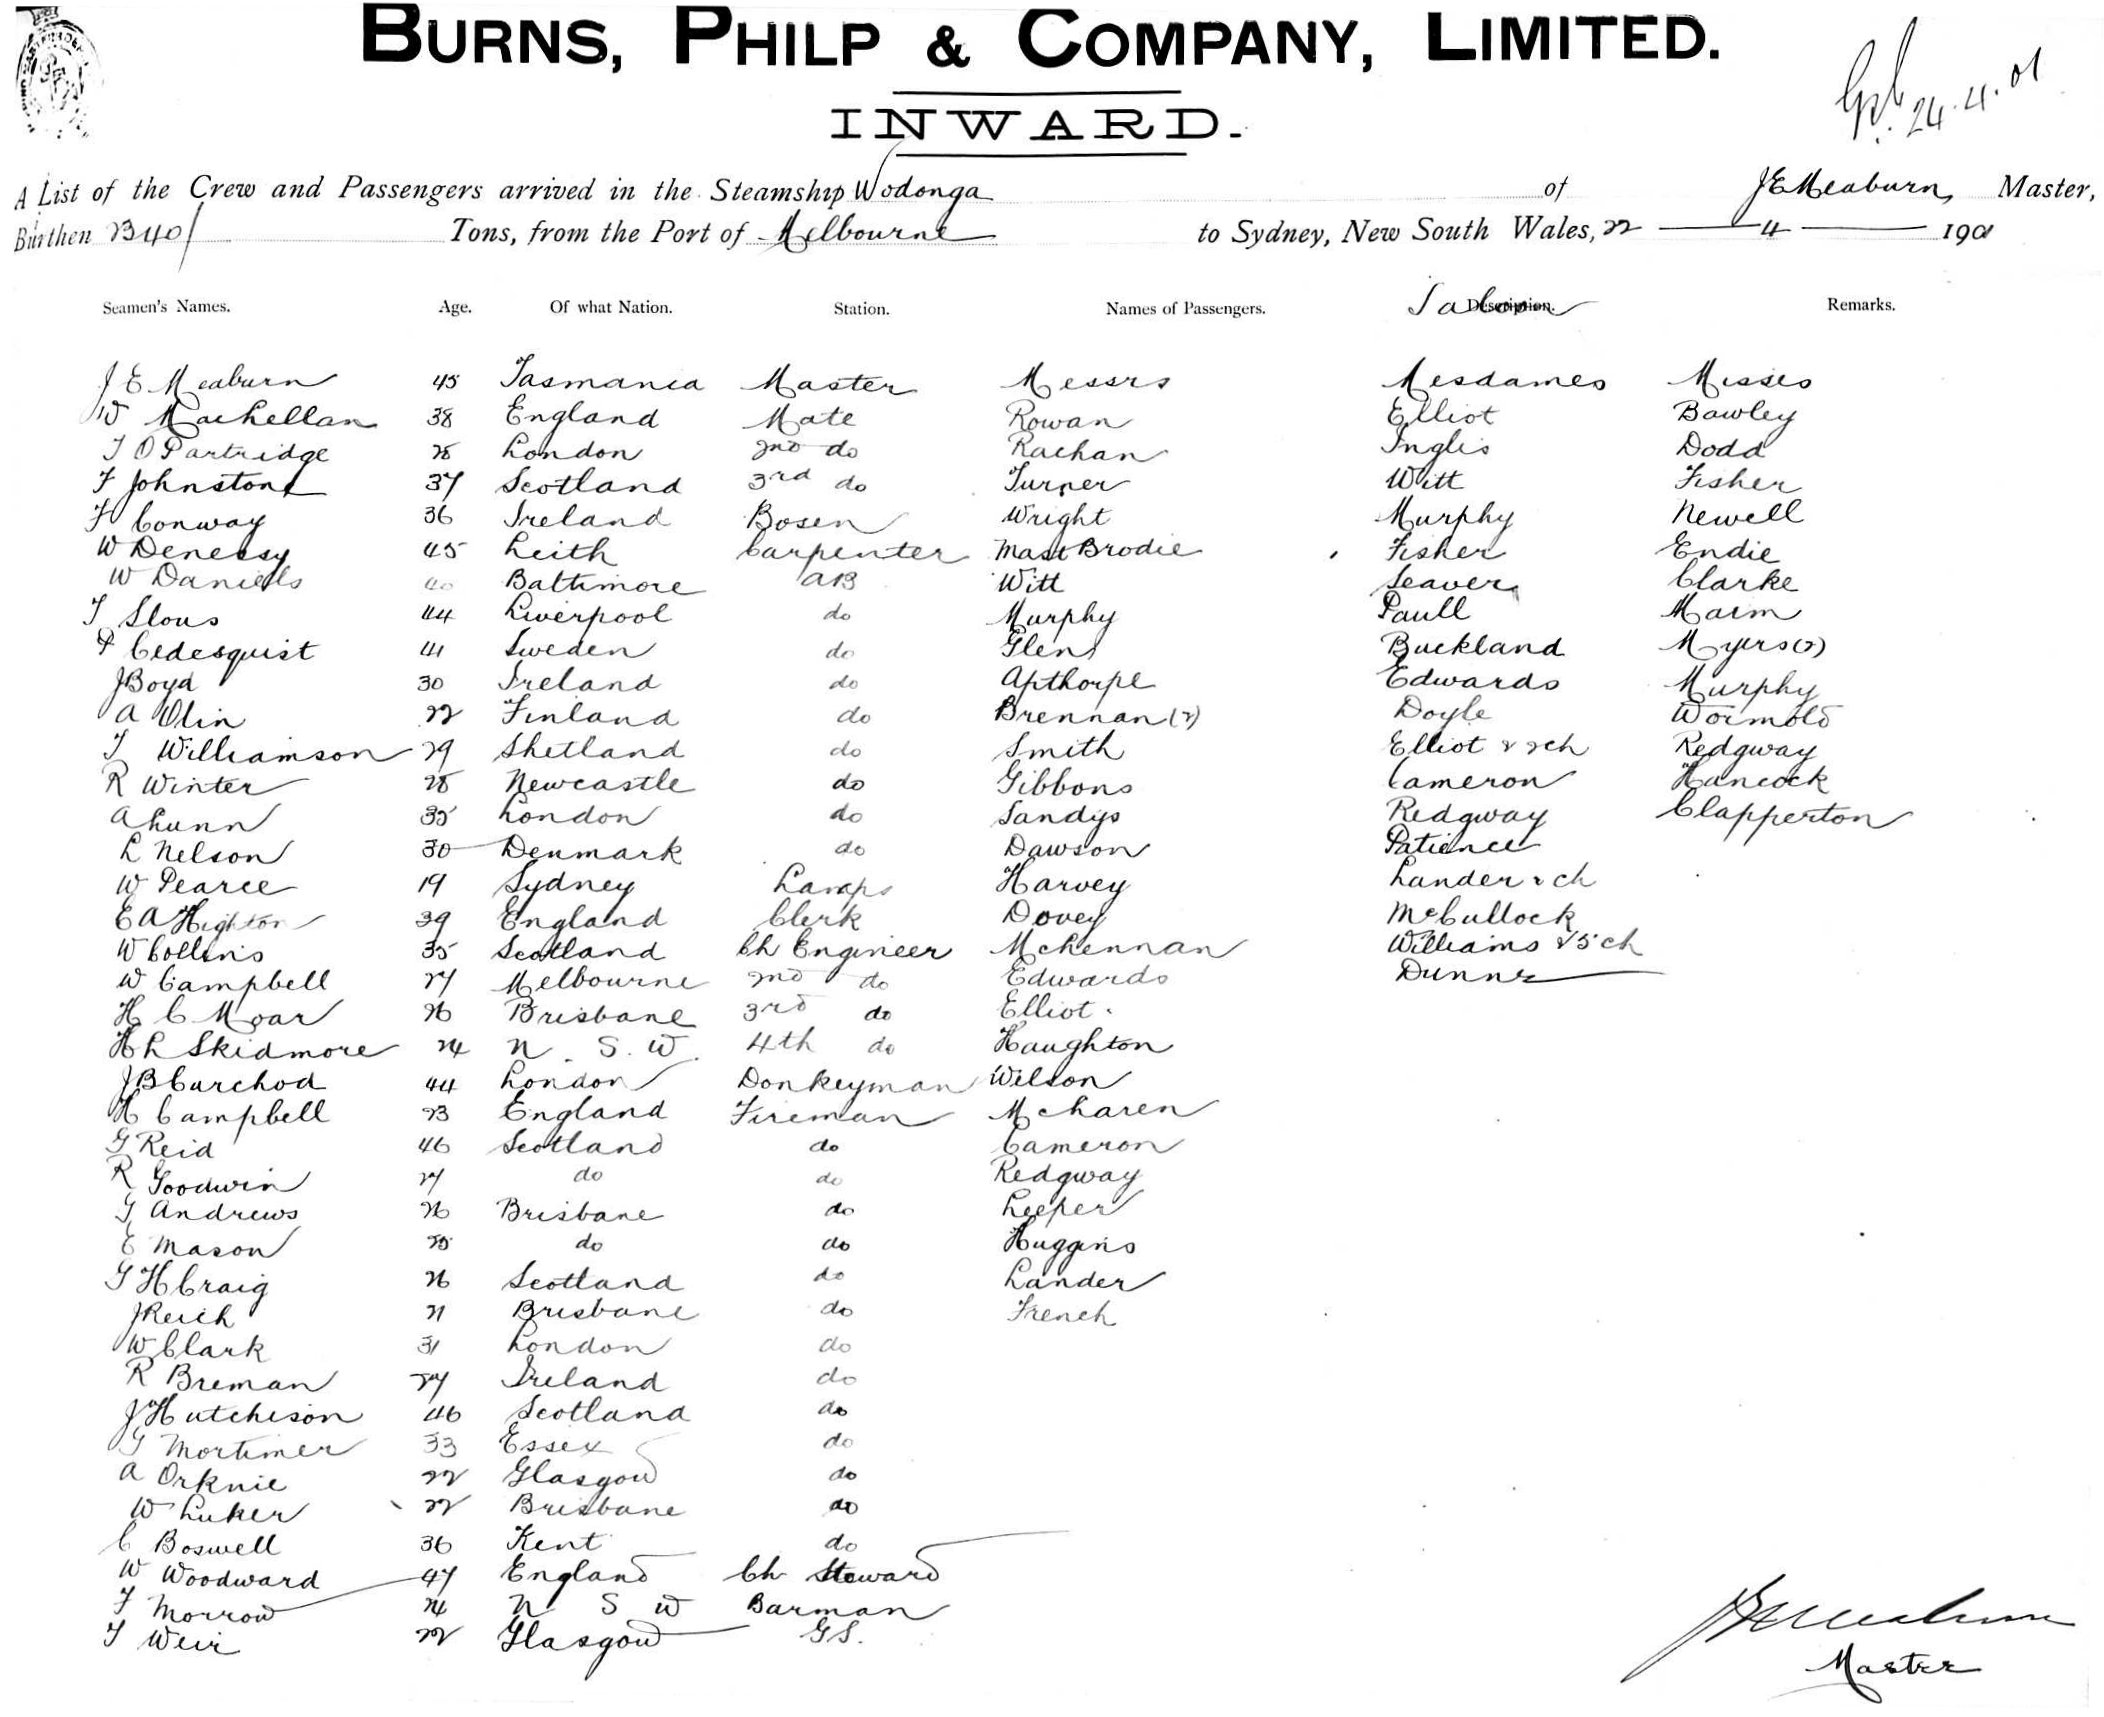 BURNS, PHILP & COMPANY, LIMITED.
INWARD.
24.4.01
A List of the Crew and Passengers arrived in the Steamship Wodonga of J E Meaburn Master,
Burthen 2340 Tons, from the Port of Melbourne to Sydney, New South Wales, 22 4 1901
Seamen's Names. Age. Of what Nation. Station. Names of Passengers. Description. Saloon Remarks.
J E Meaburn 45 Tasmania Master Messrs Mesdames Misses
W MacLellan 38 England Mate Rowan Elliot Bawley
T O Partridge 28 London 2nd do Rachan Inglis Dodd
F Johnstone 37 Scotland 3rd do Turner Witt Fisher
F Conway 36 Ireland Bosen Wright Murphy Newell
W Denessy 45 Leith Carpenter Mast Brodie Fisher Endie
W Daniels 40 Baltimore AB Witt Seaver Clarke
T Slous 44 Liverpool do Murphy Paull Marm
F Cedesquist 41 Sweden do Glen Buckland Myers (2)
J Boyd 30 Ireland do Apthorpe Edwards Murphy
A Olin 22 Finland do Brennan (2) Doyle Wormold
T Williamson 29 Shetland do Smith Elliot & 2ch Redgway
R Winter 28 Newcastle do Gibbons Cameron Hancock
A Lunn 35 London do Sandys Redgway Clapperton
L Nelson 30 Denmark do Dawson Patience
W Pearce 19 Sydney Lamps Harvey Lander & ch
E A Highton 39 England Clerk Dovey McCullock
W Collins 35 Scotland Ch Engineer McLennan Williams & 5 ch
W Campbell 27 Melbourne 2nd do Edwards Dunne
H C Moar 26 Brisbane 3rd do Elliot
H L Skidmore 24 N. S. W. 4th do Haughton
J B Curchod 44 London Donkeyman Wilson
H Campbell 23 England Fireman McLaren
G Reid 46 Scotland do Cameron
R Goodwin 27 do do Redgway
G Andrews 26 Brisbane do Leeper
E Mason 25 do do Huggins
G H Craig 26 Scotland do Lander
J Reich 21 Brisbane do French
W Clark 31 London do
R Breman 27 Ireland do
J Hutchison 46 Scotland do
G Mortimer 33 Essex do
A Orknie 22 Glasgow do
W Luker 22 Brisbane do
C Boswell 36 Kent do
W Woodward 47 England Ch Steward
F Morrow 24 N S W Barman
T Weir 22 Glasgow GS.
J E Meaburn
Master